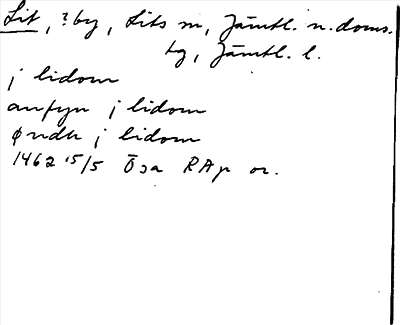 Lit, ?by, Lits sn, Jämtl. n. doms.
tg, Jämtl. l.
j lidom
anfyn j lidom
ø ndh j lidom
1462 15/5 Ösa RAp or.